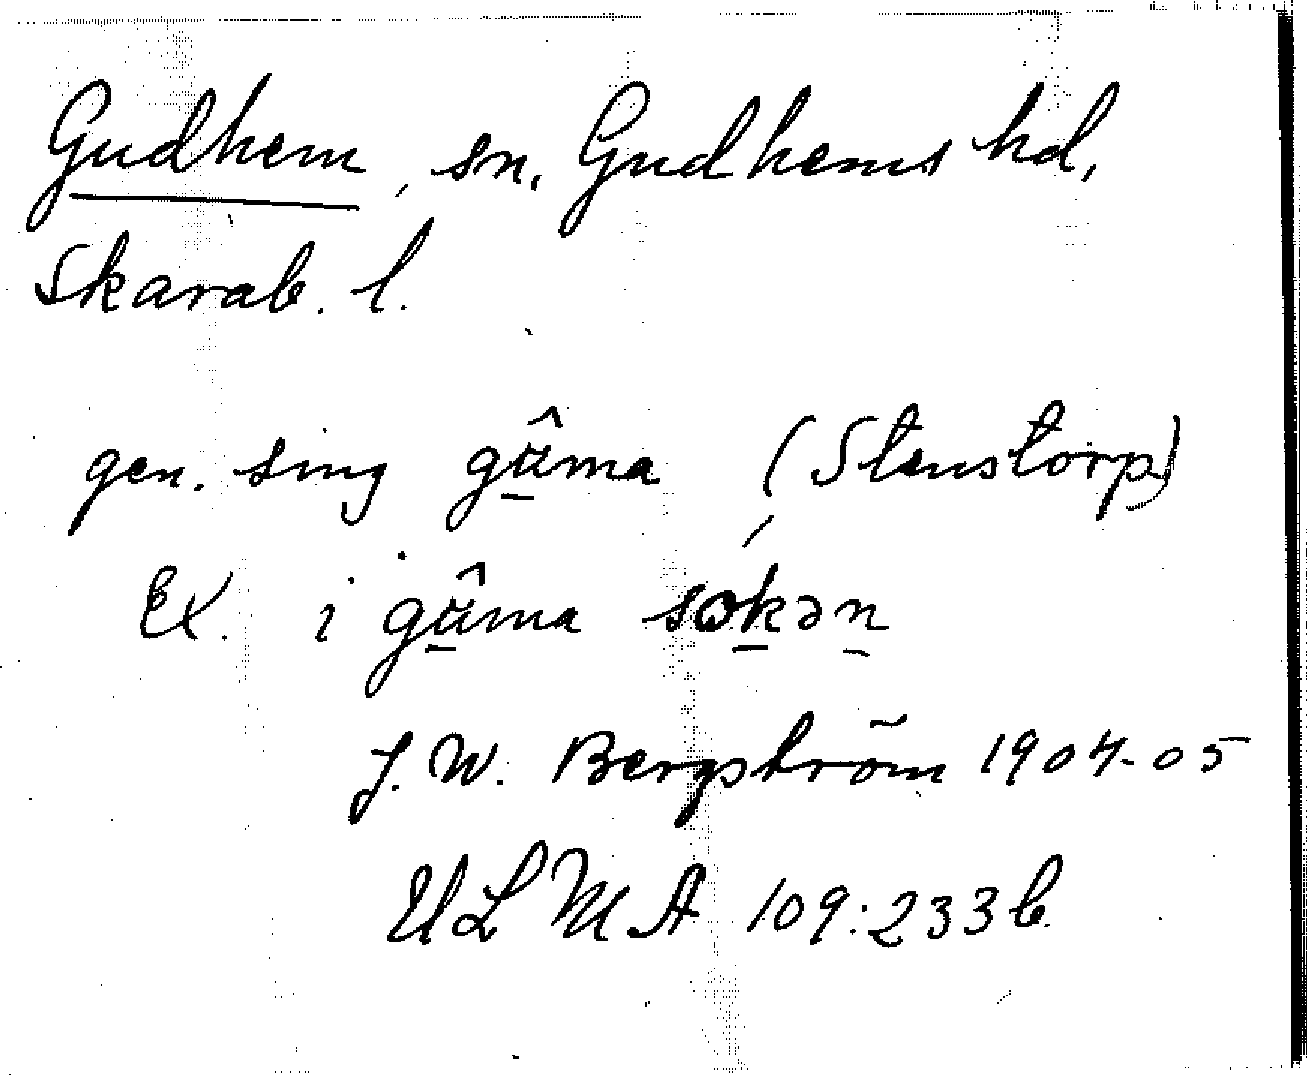 Gudhem, sn. Gudhems hd,
Skarab. l.
gen. sing gû̠ma (Stenstorp)
Ex. i gû̠ma søk̠ən̠
J. W. Bergström 1904-05
ULMA 109:233b.